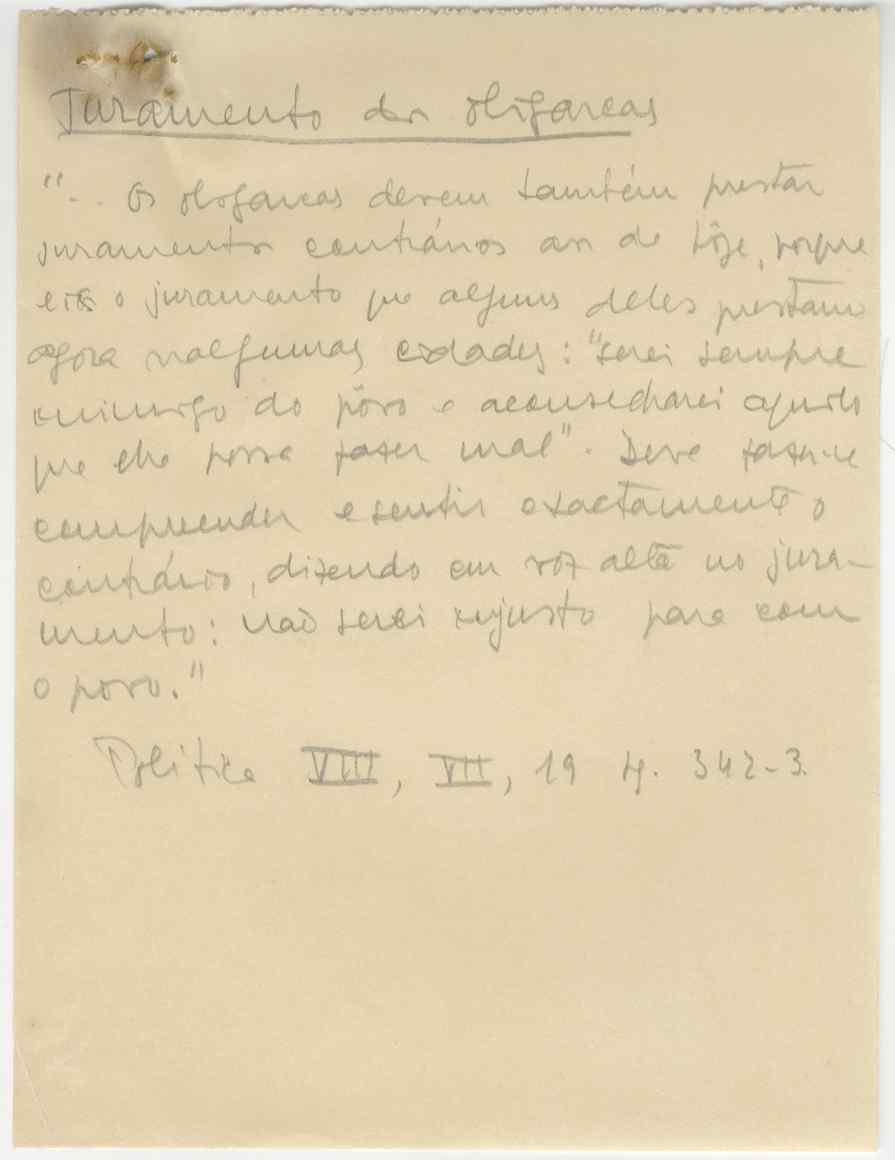 Juramento dos oligarcas
".. Os oligarcas devem também prestar
juramentos contrários aos de hôje, porque
eis o juramento que alguns deles prestam
agora nalgumas cidades: "serei sempre
inimigo do pôvo e aconselharei aquilo
que lhe possa fazer mal". Deve fazer-se
compreender e sentir exactamente o
contrário, dizendo em voz alta no jura-
mento: não serei injusto para com
o povo."
Politica VIII, VII, 19 342-3.